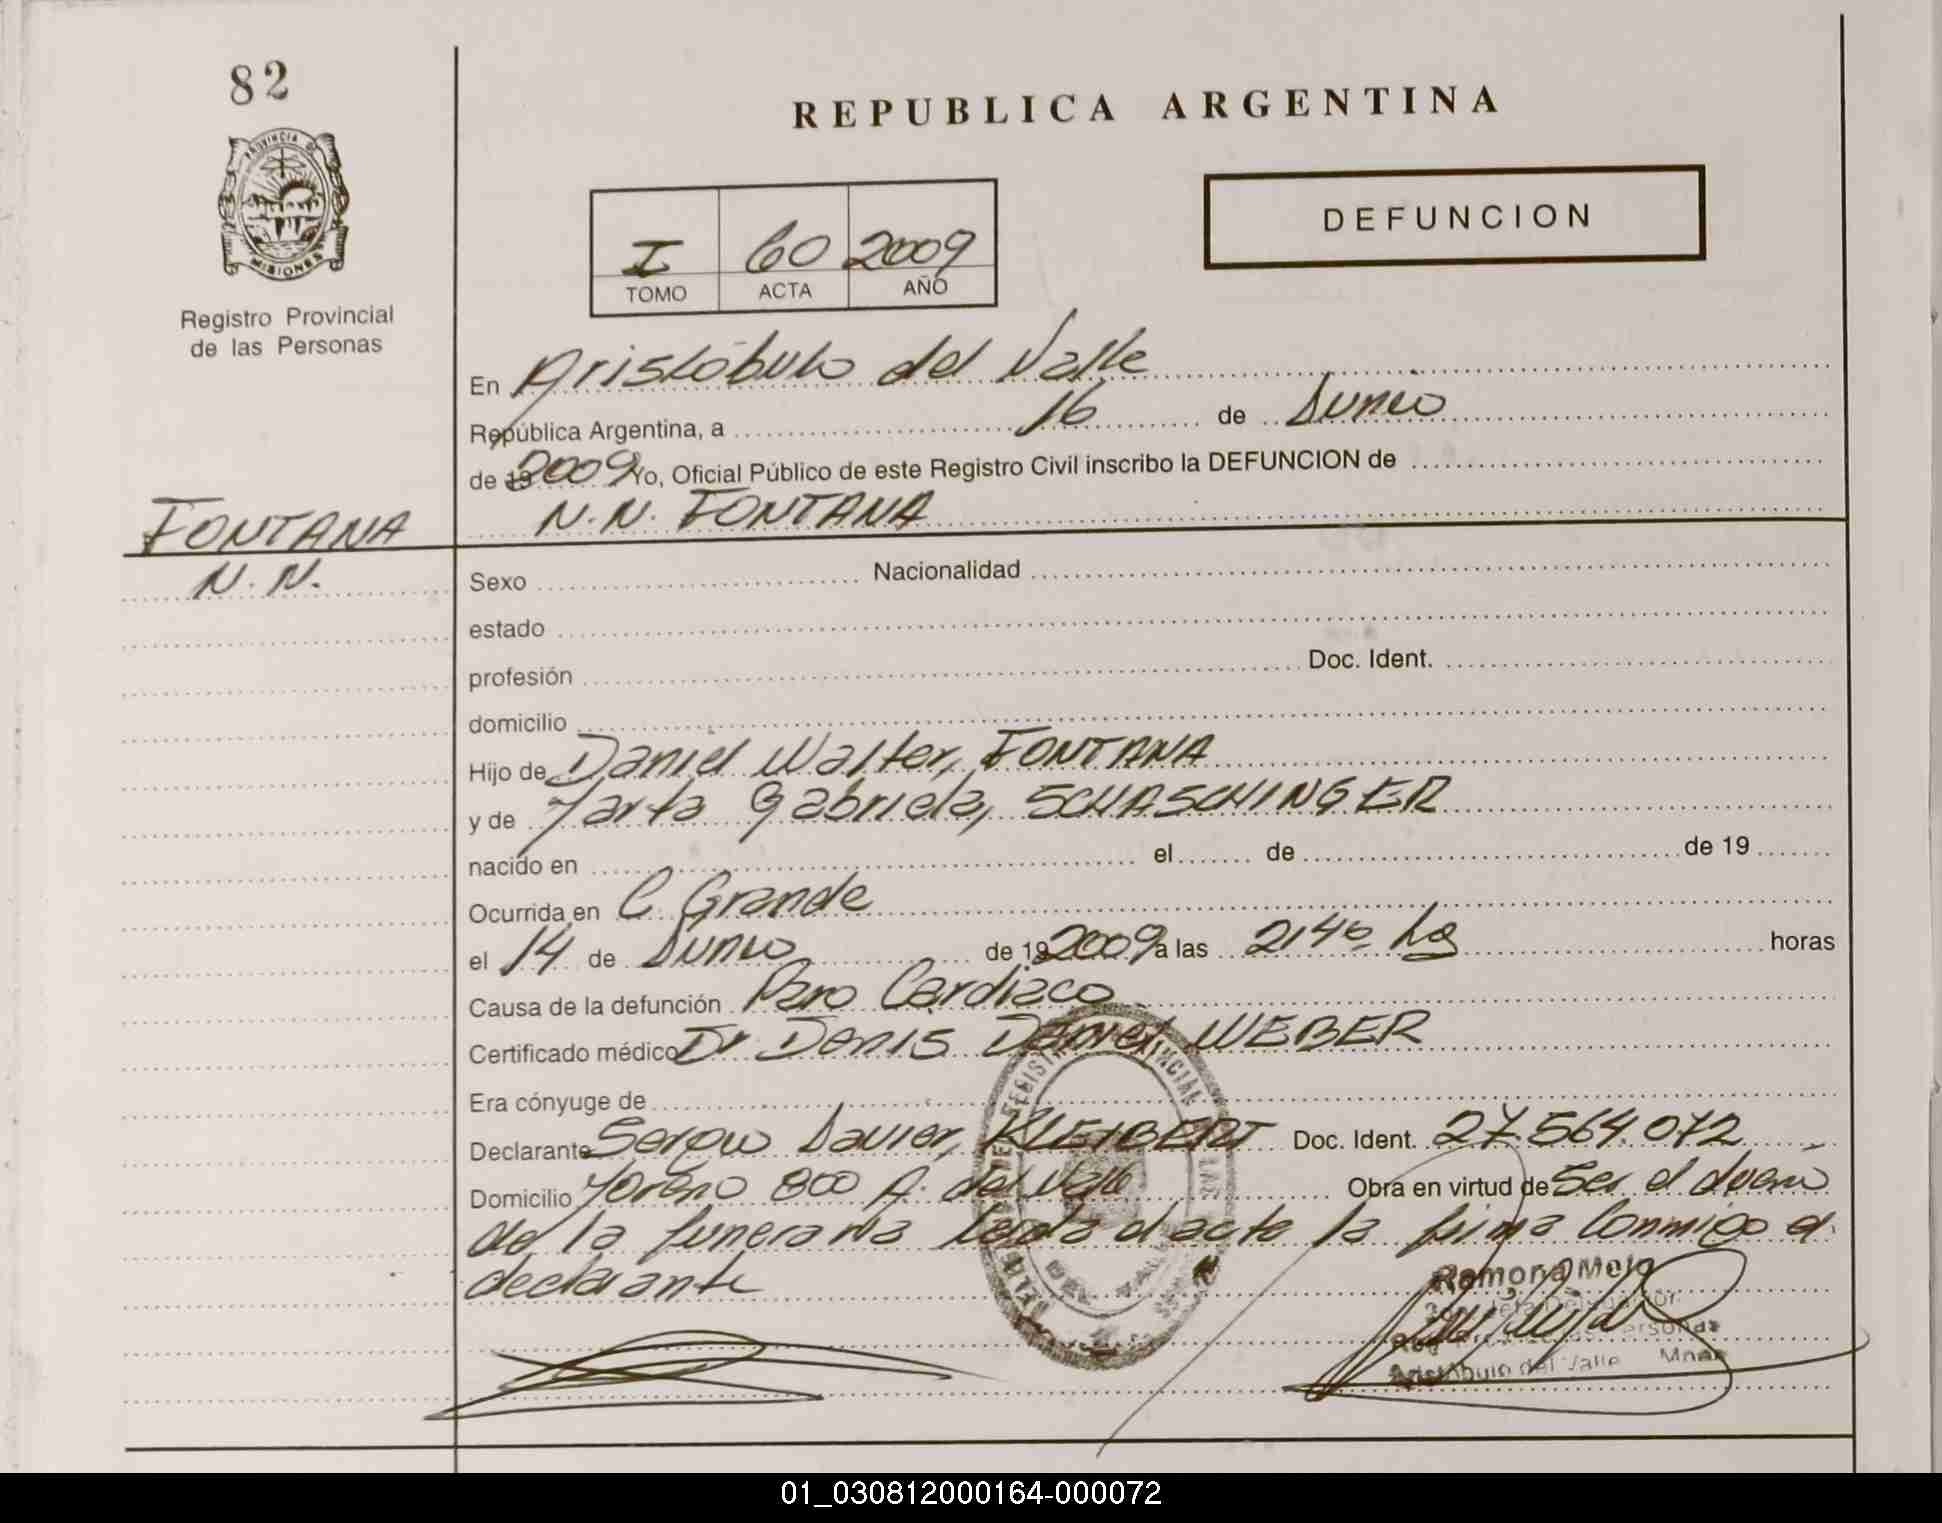 82
REPUBLICA ARGENTINA
PROVINCIA DE
MISIONES
DEFUNCION
I 60 2009
TOMO ACTA AÑO
Registro Provincial
de las Personas
En Aristóbulo del Valle
República Argentina, a 16 de Junio
de 19 2009 Yo, Oficial Público de este Registro Civil inscribo la DEFUNCION de
FONTANA N.N. FONTANA
N.N.
Sexo Nacionalidad
estado
profesión Doc. Ident.
domicilio
Hijo de Daniel Walter, FONTANA
y de Marta Gabriela, SCHASCHINGER
nacido en el de de 19
Ocurrida en C. Grande
el 14 de Junio de 19 2009 a las 2140 hs horas
Causa de la defunción Paro Cardiaco
Certificado médico Dr Denis Daniel, WEBER
Era cónyuge de
Declarante Sergio Javier, KLEIBERT Doc. Ident. 27.564.072
Domicilio Moreno 800 A. del Valle Obra en virtud de Ser el dueño
de la funeraria leida el acta la firma Conmigo el
declarante
Ramona Mojo
Aristóbulo del Valle Mnes
01_030812000164-000072